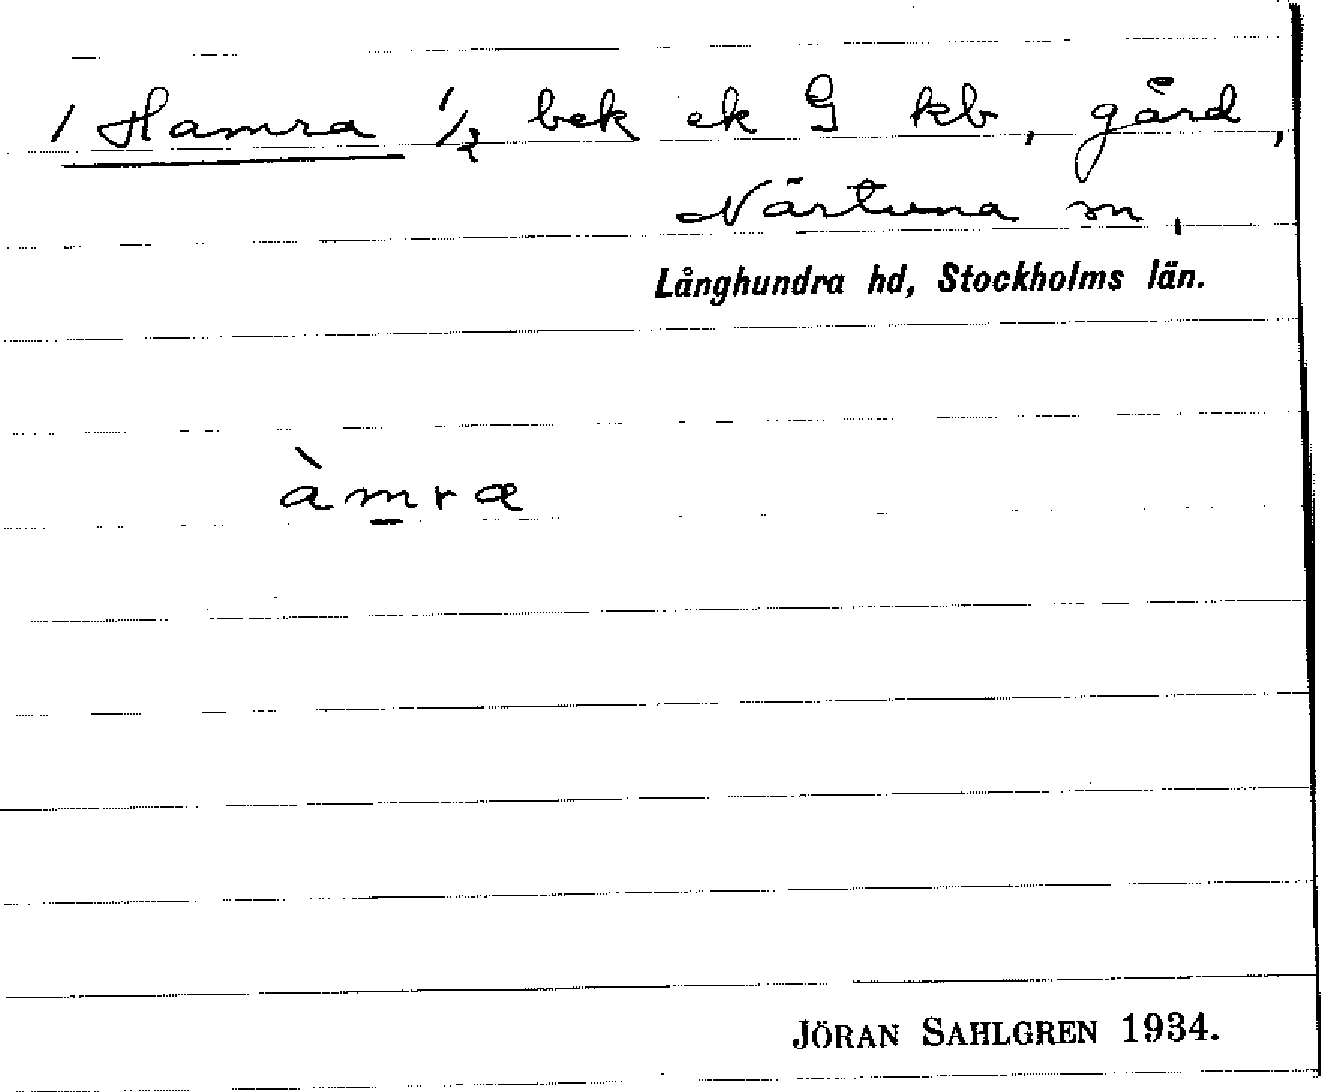 1 Hamra 1/2 bek ek G kb, gård,
Närtuna sn,
Långhundra hd, Stockholms län.
àmra
JÖRAN SAHLGREN 1934.